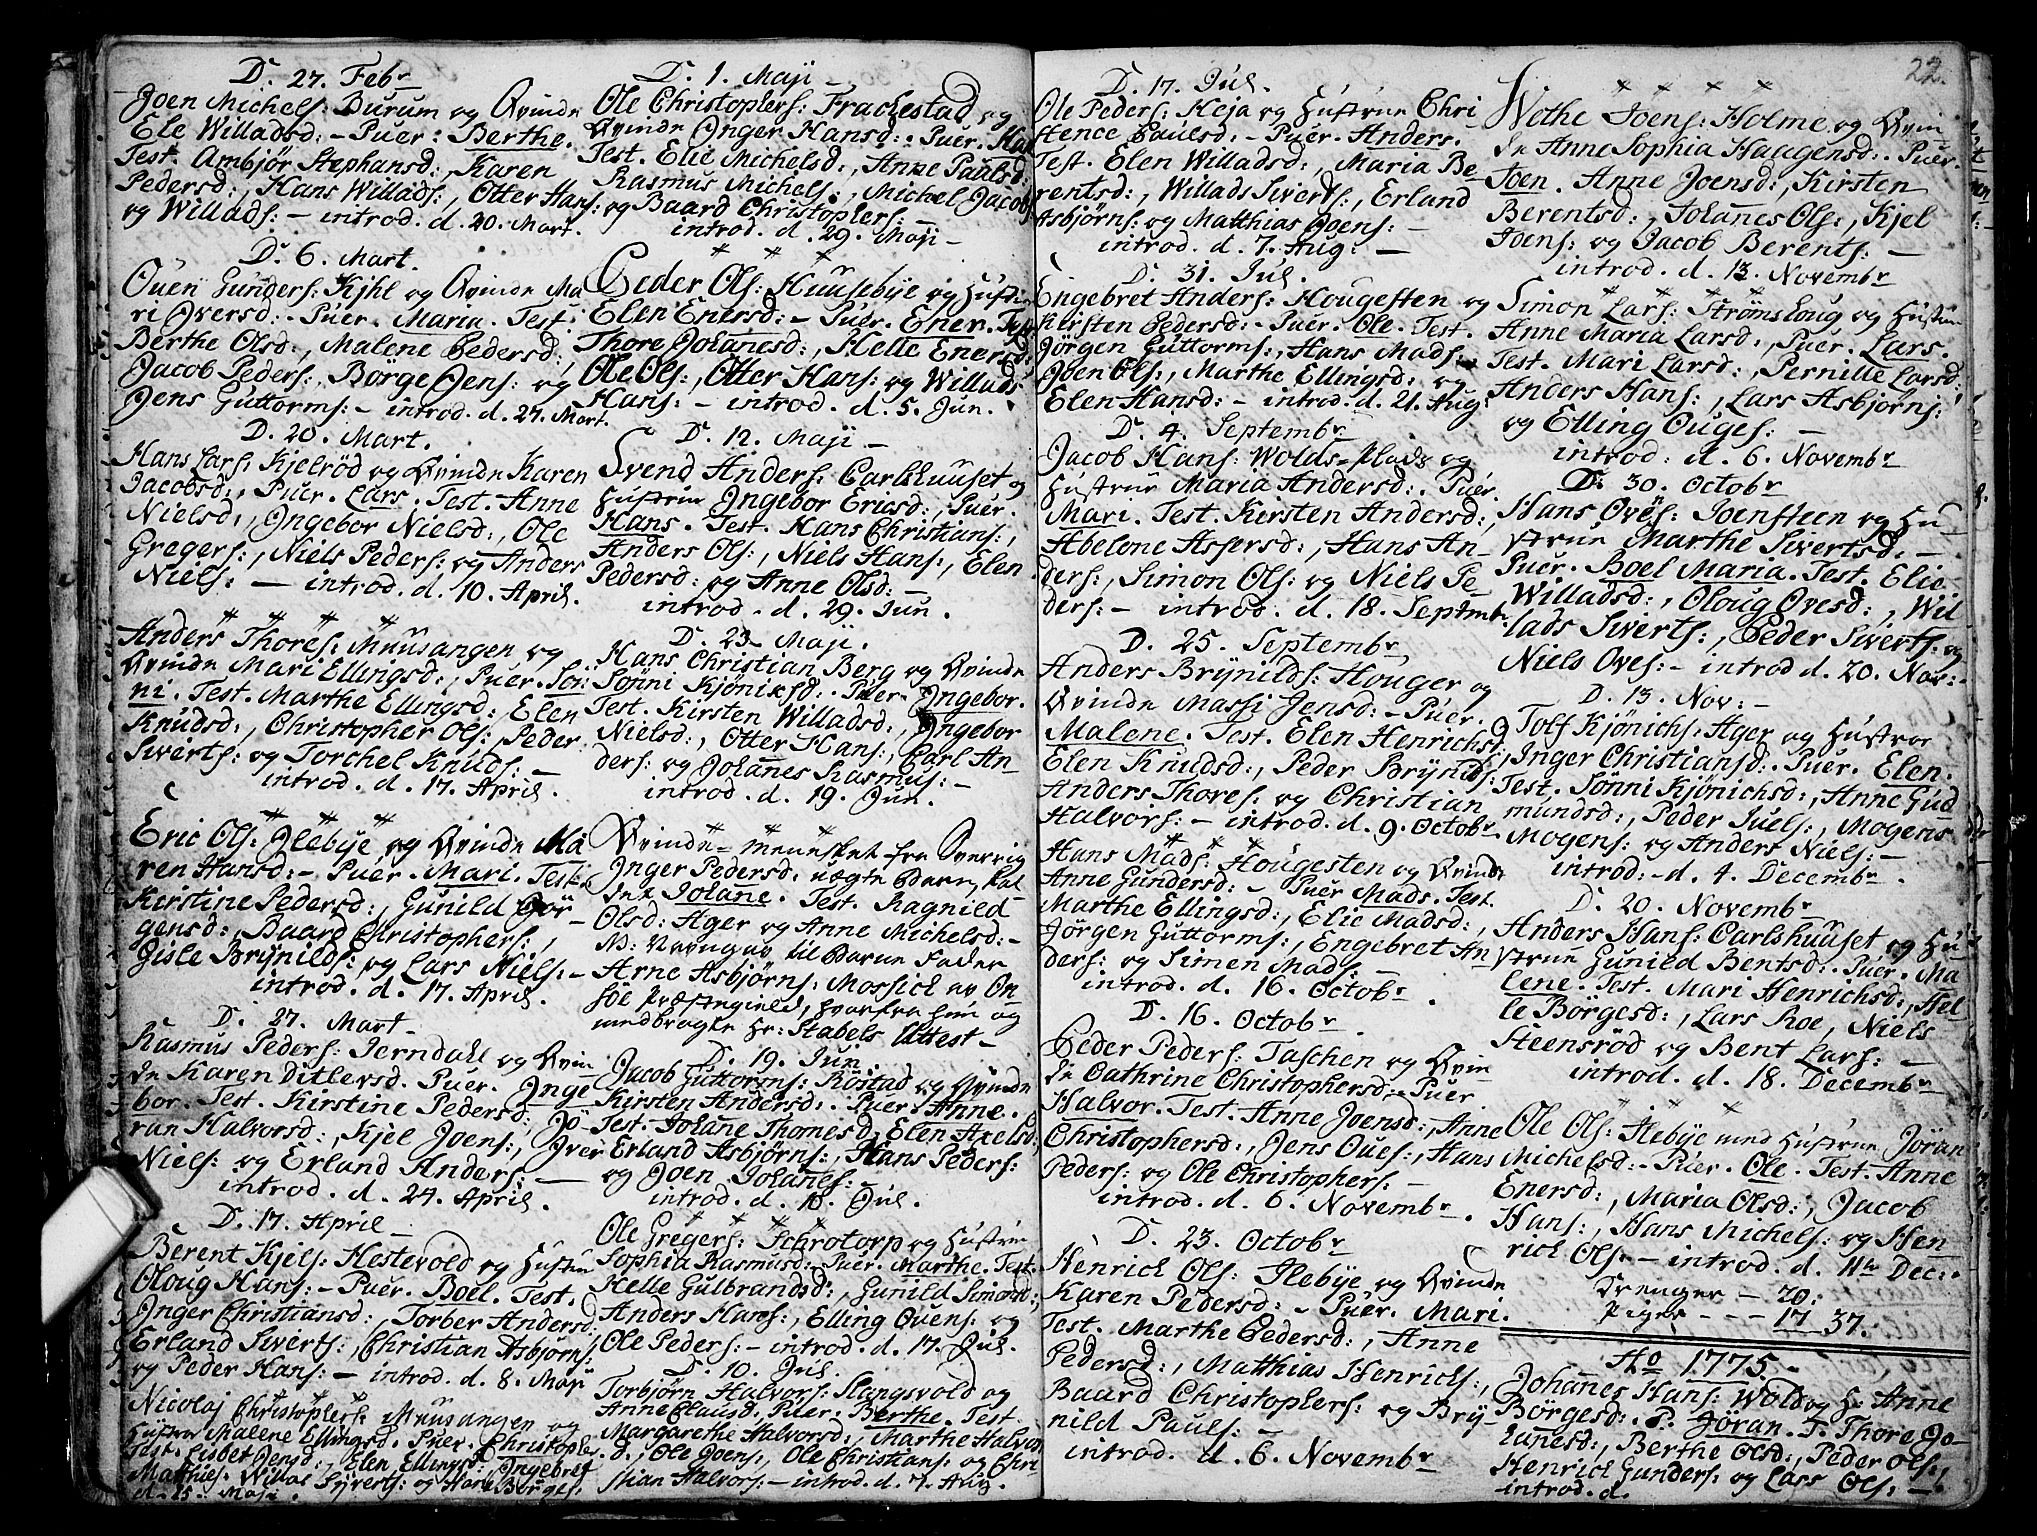 D. 27. Febr
Joen Michels: Burum og Qvinde
Ele Willadsd: - Puer: Berthe.
Test. Ambjør Stephansd:, Karen
Pedersd:, Hans Willads:, Otter Hans:
og Willads: - introd. d. 20. Mart.
D. 6. Mart.
Ouen Gunders: Kjhl og Qvinde Ma
ri Iversd: - Puer. Maria. Test:
Berthe Olsd:, Malene Pedersd:,
Jacob Peders:, Børge Jens: og
Jens Guttorms: - introd. d. 27. Mart.
D. 20. Mart.
Hans Lars: Kjelrød og Qvinde Karen
Jacobsd:, Puer. Lars. Test. Anne
Nielsd:, Ingebor Nielsd:, Ole
Gregers:, Niels Peders: og Anders
Niels: - introd. d. 10. April.
Anders Thores: Muusangen og
Qvinde Mari Ellingsd:, Puer. Søn
ni. Test. Marthe Ellingsd:, Elen
Knudsd:, Christopher Ols:, Peder
Siverts: og Torchel Knuds: -
introd. d. 17. April.
Eric Ols: Ilebye og Qvinde Ma
ren Hansd: - Puer. Mari. Test.
Kirstine Pedersd:, Gunild Jör-
gensd:, Baard Christophers:,
Gisle Brynilds: og Lars Niels: -
introd. d. 17. April.
D. 27. Mart.
Rasmus Peders: Jerndahl og Qvin
de Karen Ditlevsd. Puer. Inge
bor. Test. Kirstine Pedersd:, Jö-
ran Halvorsd:, Kjel Joens:, Iver
Niels: og Erland Anders: -
introd. d. 24. April.
D. 17. April
Berent Kjels: Hestevold og Hustru
Oloug Hans: - Puer. Boel. Test.
Inger Christiansd:, Torber Andersd:
Erland Sivert:, Christian Asbjørns:
og Peder Hans: - introd. d. 8. Maji
Nicolaj Christophers: Muusangen og
Hustru Malene Ellingsd. Puer. Christopher
Test. Lisbet Jensd:, Elen Ellingsd:, Ingebret
Mathies: Willas Syverts: og Hans Børges:
d. 15. Maji.
D. 1. Maji
Ole Christophers: Frachestad og
Qvinde Inger Hansd: - Puer. Hans
Test. Elie Michelsd:, Anne Paulsd:
Rasmus Michels:, Michel Jacobs:
og Baard Christophers: -
introd. d. 29. Maji -
Peder Ols: Huusebye og Hustru
Elen Enersd: - Puer. Ener. Test.
Thore Johanesd:, Helle Enersd:,
Ole Ols:, Otter Hans: og Willads
Hans: - introd. d. 5. Jun.
D. 12. Maji -
Svend Anders: Carlshuuset og
Hustrue Ingebor Ericsd:, Puer.
Hans. Test. Hans Christians:,
Anders Ols:, Niels Hans:, Elen
Pedersd: og Anne Olsd: -
introd. d. 29. Jun.
D. 23. Maji.
Hans Christian Berg og Qvinde
Sønni Kjönixsd: Puer. Ingebor.
Test. Kirsten Willadsd:, Ingebor
Nielsd:, Otter Hans:, Carl An
ders: og Johanes Rasmus: -
introd. d. 19. Jun.
Qvinde-mennesket fra Sverrig
Inger Pedersd: uægte Barn, kal
det Johane. Test. Ragnild
Olsd: Ager og Anne Michelsd: -
NB: til Barne Fader
Arne Asbjørns: Mossick av On
söe Præstegield, hvorfra hun og
medbragte Hr: Stabels Attest -
D. 19. Jun.
Jacob Guttorms: Röstad og Qvinde
Kirsten Andersd: Puer. Anne.
Test: Johane Thomesd:, Elen Axelsd:
Erland Asbjørns:, Hans Peders:
og Joen Johanes: -
introd. d. 10. Jul.
Ole Gregers: Schrotorp og Hustru
Sophia Rasmusd: Puer. Marthe. Test.
Helle Gulbrandsd:, Gunild Simonsd:,
Anders Hans:, Elling Ouens: og
Ole Peders: - introd. d. 17. Jul.
D. 10. Jul.
Torbjørn Halvors: Slangsvold og
Anne Clausd: Puer. Berthe. Test.
Margarethe Halvorsd:, Marthe Halvors
d:, Ole Joens:, Ole Christians: og Chri-
stian Halvors: - introd. d. 7. Aug.
D. 17. Jul.
Ole Peders: Heja og Hustrue Chri
stence Paulsd: - Puer. Anders.
Test. Elen Willadsd:, Maria Be-
rentsd:, Willads Siverts:, Erland
Asbjørns: og Matthias Joens: -
introd. d. 7. Aug: -
D. 31. Jul.
Engebret Anders: Hougesten og
Kirsten Pedersd: - Puer. Ole. Test.
Jörgen Guttorms:, Hans Mads:,
Joen Ols:, Marthe Ellingsd: og
Elen Hansd: - introd. d. 21. Aug:
D. 4. Septembr
Jacob Hans: Wolds-plads og
Hustrue Maria Andersd: Puer.
Mari. Test. Kirsten Andersd:,
Abelone Aspersd:, Hans An-
ders:, Simon Ols: og Niels Pe
ders: - introd. d. 18. Septembr
D. 25. Septembr
Anders Brynilds: Houger og
Qvinde Massi Jensd: - Puer.
Malene. Test. Elen Henrichsd:
Elen Knudsd:, Peder Brynilds:
Anders Thores: og Christian
Halvors: - introd. d. 9. Octobr.
Hans Mads: Hougesten og Qvinde
Anne Gundersd: - Puer Mads. Test.
Marthe Ellingsd:, Elie Madsd:,
Jörgen Guttorms:, Engebret An
ders: og Simen Mads: -
introd. d. 16. Octobr.
D. 16. Octobr.
Peder Peders: Taschen og Qvin
de Cathrine Christophersd: - Puer
Halvor. Test. Anne Joensd:, Anne
Christophersd:, Jens Oues:, Hans
Peders: og Ole Christophers: -
introd. d. 6. Novembr.
D. 23. Octobr
Henrich Ols: Ilebye og Qvinde
Karen Pedersd: - Puer. Mari.
Test. Marthe Pedersd:, Anne
Pedersd:, Matthias Henrichs:,
Baard Christophers: og Bry-
nild Pauls: -
introd. d. 6. Novembr
22.
Wethe Joens: Holme og Qvin
de Anne Sophia Haagensd: Puer.
Joen. Anne Joensd:, Kirsten
Berentsd:, Johanes Ols:, Kjel
Joens: og Jacob Berents: -
introd. d. 13. Novembr
Simon Lars: Strømsloug og Hustru
Anne Maria Larsd:, Puer. Lars.
Test. Mari Larsd:, Pernille Larsd:
Anders Hans:, Lars Asbjørns:
og Elling Ouges: -
introd: d. 6. Novembr
D. 30. Octobr
Hans Oves: Joensteen og Hu
strue Marthe Sivertsd. -
Puer. Boel Maria. Test. Elie
Willadsd:, Oloug Ovesd:, Wil
lads Siverts:, Peder Siverts: og
Niels Oves: - introd d. 20. Nov: -
D. 13. Nov: -
Tolf Kjönichs: Ager og Hustrue
Inger Christiansd: Puer. Elen.
Test. Sönni Kjönichsd:, Anne Gud
mundsd:, Peder Juels:, Mogens
Mogens: og Anders Niels: -
introd: d. 4. Decembr.
D. 20. Novembr
Anders Hans: Carlshuuset og Hu
strue Gunild Bentsd: Puer. Ma
lene. Test. Mari Henrichsd:, Hel
le Børgesd:, Lars Roe, Niels
Steensrød og Bent Lars: -
introd. d. 18. Decembr
Ole Ols: Ilebye med Hustrue Jöran
Michelsd: - Puer. Ole. Test. Anne
Enersd:, Maria Olsd:, Jacob
Hans:, Hans Michels: og Hen
rich Ols: - introd. d. 11te Dec: -
Drenger - 20:
Piger - - - 17 37.
Ao 1775.
Johanes Hans: Wold og H. Anne
Børgesd: P. Jöran. T. Thore Jo-
hanesd:, Berthe Olsd:, Peder Ols:,
Henrich Gunders: og Lars Ols: -
introd. d.